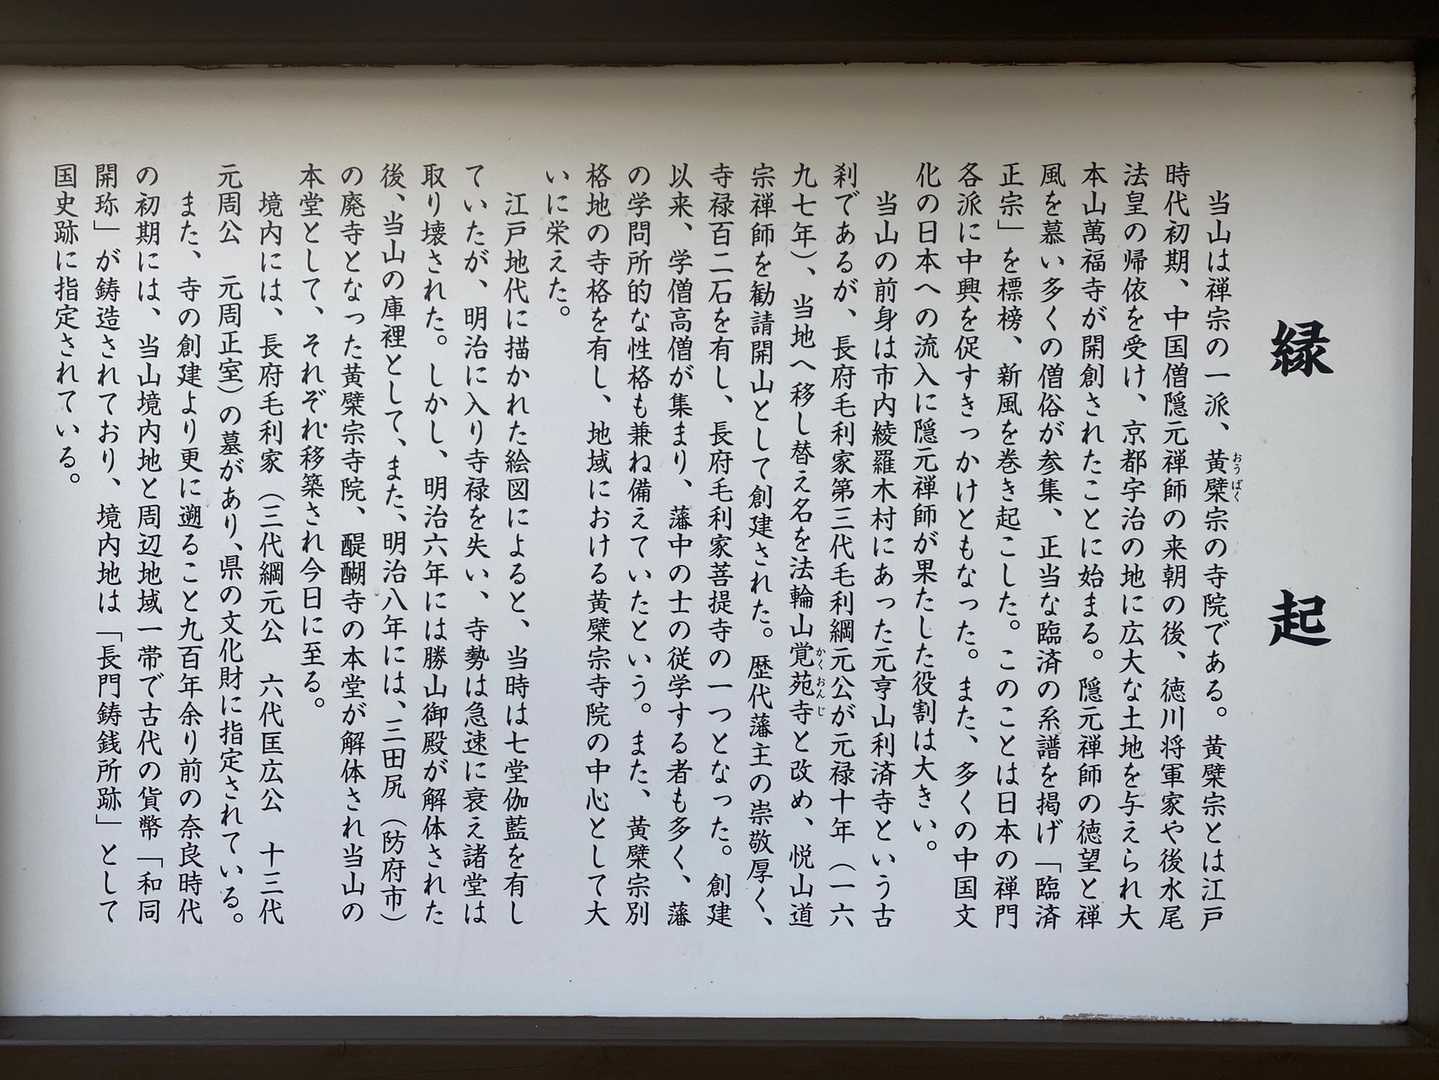 縁起
当山は禅宗の一派、黄檗宗の寺院である。黄檗宗とは江戸
おうばく
時代初期、中国僧隠元禅師の来朝の後、徳川将軍家や後水尾
法皇の帰依を受け、京都宇治の地に広大な土地を与えられ大
本山萬福寺が開創されたことに始まる。隠元禅師の徳望と禅
風を慕い多くの僧俗が参集、正当な臨済の系譜を掲げ「臨済
正宗」を標榜、新風を巻き起こした。このことは日本の禅門
各派に中興を促すきっかけともなった。また、多くの中国文
化の日本への流入に隠元禅師が果たした役割は大きい。
当山の前身は市内綾羅木村にあった元亨山利済寺という古
刹であるが、長府毛利家第三代毛利綱元公が元禄十年（一六
九七年）、当地へ移し替え名を法輪山覚苑寺と改め、悦山道
かくおんじ
宗禅師を勧請開山として創建された。歴代藩主の崇敬厚く、
寺禄百二石を有し、長府毛利家菩提寺の一つとなった。創建
以来、学僧高僧が集まり、藩中の士の従学する者も多く、藩
の学問所的な性格も兼ね備えていたという。また、黄檗宗別
格地の寺格を有し、地域における黄檗宗寺院の中心として大
いに栄えた。
江戸地代に描かれた絵図によると、当時は七堂伽藍を有し
ていたが、明治に入り寺禄を失い、寺勢は急速に衰え諸堂は
取り壊された。しかし、明治六年には勝山御殿が解体された
後、当山の庫裡として、また、明治八年には、三田尻（防府市）
の廃寺となった黄檗宗寺院、醍醐寺の本堂が解体され当山の
本堂として、それぞれ移築され今日に至る。
境内には、長府毛利家（三代綱元公　六代匡広公　十三代
元周公　元周正室）の墓があり、県の文化財に指定されている。
また、寺の創建より更に遡ること九百年余り前の奈良時代
の初期には、当山境内地と周辺地域一帯で古代の貨幣「和同
開珎」が鋳造されており、境内地は「長門鋳銭所跡」として
国史跡に指定されている。